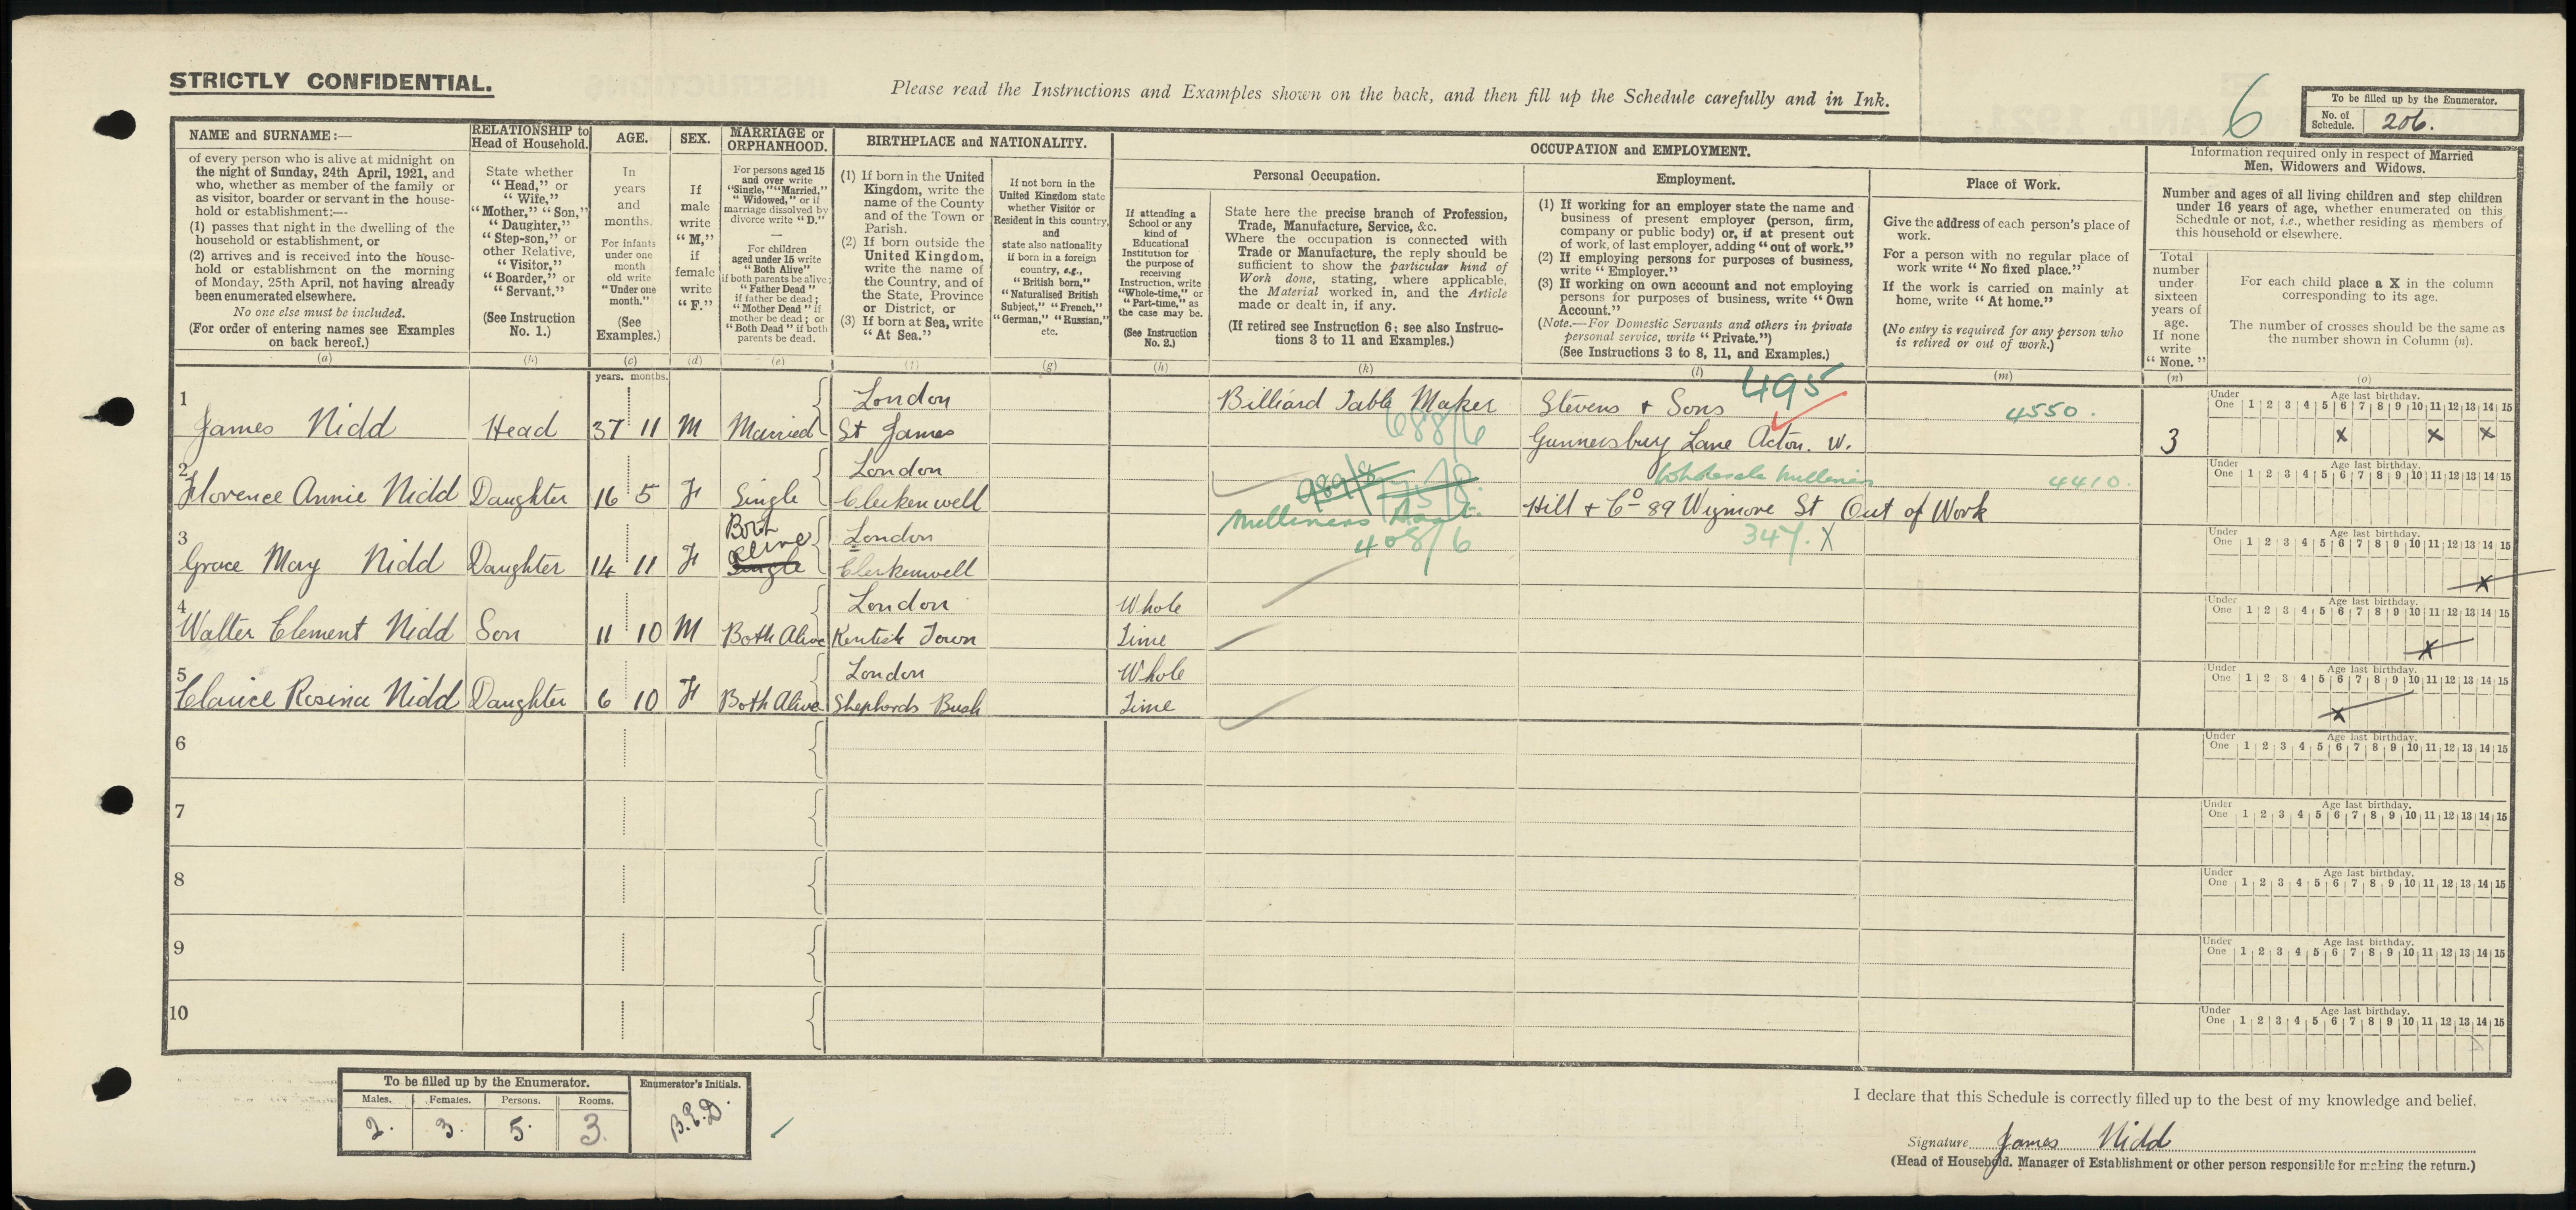 STRICTLY CONFIDENTIAL.
Please read the Instructions and Examples shown on the back, and then fill up the Schedule carefully and in Ink.
6
To be filled up by the Enumerator.
No. of Schedule. 206.
NAME and SURNAME:—
of every person who is alive at midnight on
the night of Sunday, 24th April, 1921, and
who, whether as member of the family or
as visitor, boarder or servant in the house-
hold or establishment:—
(1) passes that night in the dwelling of the
household or establishment, or
(2) arrives and is received into the house-
hold or establishment on the morning
of Monday, 25th April, not having already
been enumerated elsewhere.
No one else must be included.
(For order of entering names see Examples
on back hereof.)
(a)
RELATIONSHIP to
Head of Household.
State whether
"Head," or
"Wife,"
"Mother," "Son,"
"Daughter,"
"Step-son," or
other Relative,
"Visitor,"
"Boarder," or
"Servant."
(See Instruction
No. 1.)
(b)
AGE.
In
years
and
months.
For infants
under one
month
old write
"Under one
month."
(See
Examples.)
(c)
SEX.
If
male
write
"M,"
if
female
write
"F."
(d)
MARRIAGE or
ORPHANHOOD.
For persons aged 15
and over write
"Single," "Married,"
"Widowed," or if
marriage dissolved by
divorce write "D."
—
For children
aged under 15 write
"Both Alive"
if both parents be alive;
"Father Dead"
if father be dead;
"Mother Dead" if
mother be dead; or
"Both Dead" if both
parents be dead.
(e)
BIRTHPLACE and NATIONALITY.
(1) If born in the United
Kingdom, write the
name of the County
and of the Town or
Parish.
(2) If born outside the
United Kingdom,
write the name of
the Country, and of
the State, Province
or District, or
(3) If born at Sea, write
"At Sea."
(f)
If not born in the
United Kingdom state
whether Visitor or
Resident in this country,
and
state also nationality
if born in a foreign
country, e.g.,
"British born,"
"Naturalised British
Subject," "French,"
"German," "Russian,"
etc.
(g)
OCCUPATION and EMPLOYMENT.
If attending a
School or any
kind of
Educational
Institution for
the purpose of
receiving
Instruction, write
"Whole-time," or
"Part-time," as
the case may be.
(See Instruction
No. 2.)
(h)
Personal Occupation.
State here the precise branch of Profession,
Trade, Manufacture, Service, &c.
Where the occupation is connected with
Trade or Manufacture, the reply should be
sufficient to show the particular kind of
Work done, stating, where applicable,
the Material worked in, and the Article
made or dealt in, if any.
(If retired see Instruction 6; see also Instruc-
tions 3 to 11 and Examples.)
(k)
Employment.
(1) If working for an employer state the name and
business of present employer (person, firm,
company or public body) or, if at present out
of work, of last employer, adding "out of work."
(2) If employing persons for purposes of business,
write "Employer."
(3) If working on own account and not employing
persons for purposes of business, write "Own
Account."
(Note.—For Domestic Servants and others in private
personal service, write "Private.")
(See Instructions 3 to 8, 11, and Examples.)
(l)
Place of Work.
Give the address of each person's place of
work.
For a person with no regular place of
work write "No fixed place."
If the work is carried on mainly at
home, write "At home."
(No entry is required for any person who
is retired or out of work.)
(m)
Information required only in respect of Married
Men, Widowers and Widows.
Number and ages of all living children and step children
under 16 years of age, whether enumerated on this
Schedule or not, i.e., whether residing as members of
this household or elsewhere.
Total
number
under
sixteen
years of
age.
If none
write
"None."
(n)
For each child place a X in the column
corresponding to its age.
The number of crosses should be the same as
the number shown in Column (n).
(o)
years. months.
1 James Nidd Head 37 11 M Married London St James
Billiard Table Maker 688/6
Stevens & Sons 495
Gunnersbury Lane Acton. W.
4550.
3
Under One 1 2 3 4 5 6 7 8 9 10 11 12 13 14 15
Age last birthday.
x x x
2 Florence Annie Nidd Daughter 16 5 F Single London Clerkenwell
Milliners Asst.
408/6
Wholesale Milliners
Hill & Co 89 Wigmore St Out of Work
347. X
4410.
Under One 1 2 3 4 5 6 7 8 9 10 11 12 13 14 15
Age last birthday.
3 Grace May Nidd Daughter 14 11 F Both Alive Single London Clerkenwell
Under One 1 2 3 4 5 6 7 8 9 10 11 12 13 14 15
Age last birthday.
x
4 Walter Clement Nidd Son 11 10 M Both Alive London Kentish Town Whole Time
Under One 1 2 3 4 5 6 7 8 9 10 11 12 13 14 15
Age last birthday.
x
5 Clarice Rosina Nidd Daughter 6 10 F Both Alive London Shepherds Bush Whole Time
Under One 1 2 3 4 5 6 7 8 9 10 11 12 13 14 15
Age last birthday.
x
6
Under One 1 2 3 4 5 6 7 8 9 10 11 12 13 14 15
Age last birthday.
7
Under One 1 2 3 4 5 6 7 8 9 10 11 12 13 14 15
Age last birthday.
8
Under One 1 2 3 4 5 6 7 8 9 10 11 12 13 14 15
Age last birthday.
9
Under One 1 2 3 4 5 6 7 8 9 10 11 12 13 14 15
Age last birthday.
10
Under One 1 2 3 4 5 6 7 8 9 10 11 12 13 14 15
Age last birthday.
To be filled up by the Enumerator.
Males. Females. Persons. Rooms.
2. 3. 5. 3.
Enumerator's Initials.
B.E.D.
I declare that this Schedule is correctly filled up to the best of my knowledge and belief.
Signature James Nidd
(Head of Household, Manager of Establishment or other person responsible for making the return.)